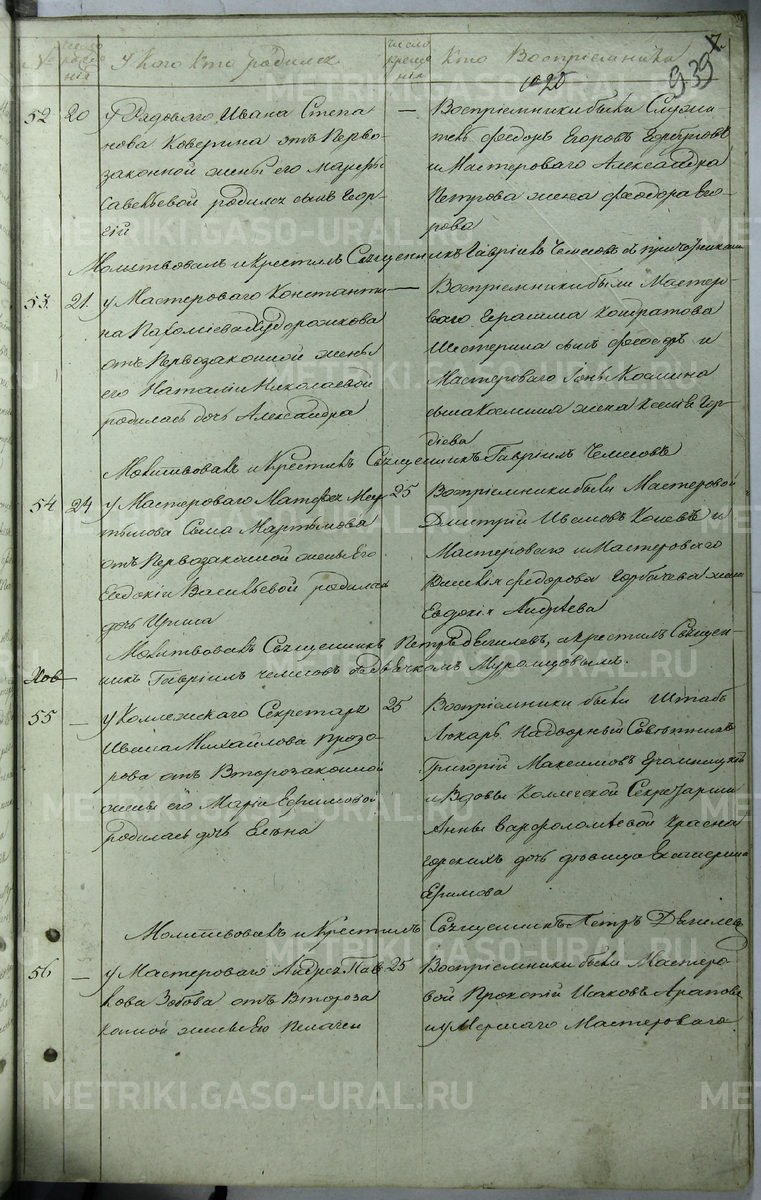 № число рожде
нія У кого кто родился число креще
нія Кто Воспріемники
939
20
52 20 у Рядоваго Ивана Степа
нова Коверина отъ Перво
законной жены его Марфы
Савельевой родился сынъ Геор
гій
— Воспріемники были Служи
тель Федоръ Егоровъ
и Мастероваго Александра
Петрова жена Феодора Его
рова
Молитвовалъ и Крестилъ Священникъ Гавріилъ Чемесовъ съ причетниками
53. 21. у Мастероваго Константи
на Пахоміева Худорожкова
отъ Первозаконной жены
его Наталіи Николаевой
родилась дочь Александра
— Воспріемники были Мастеро
ваго Герасима Кондратова
Шестерина сынъ Феодоръ и
Мастероваго Іоны Космина
сына Космина жена Ксенія Гор
діева
Молитвовалъ и Крестилъ Священникъ Гавріилъ Чемесовъ
54 24 у Мастероваго Матфея Мар
тынова Сына Мартынова
отъ Первозаконной жены Его
Евдокіи Васильевой родилась
дочь Ирина
25 Воспріемники были Мастеровой
Дмитрій Ивановъ и
Мастероваго и Мастероваго
Василія Федорова Горбачева жена
Евдокія Андреева
Молитвовалъ Священникъ Петръ Дягилевъ, а крестилъ Священ
никъ Гавріилъ Чемесовъ съ дьячкомъ Муромцовымъ.
55 — у Коллежскаго Секретаря
Ивана Михайлова Прозо
рова отъ Второзаконной
жены его Маріи Ефимовой
родилась дочь Елена
25 Воспріемники были Штабъ
Лекарь Надворный Совѣтникъ
Григорій Максимовъ
и Вдовы Коллежской Секретарши
Анны Варфоломѣевой Красно
горскихъ дочь дѣвица Екатерина
Ефимова
Молитвовалъ и Крестилъ Священникъ Петръ Дягилевъ
56 — у Мастероваго Андрея Пав
лова Зобова отъ Вторoза
конной жены Его Пелагеи
25 Воспріемники были Мастеро
вой Прокопій Исаковъ Араповъ
и Умершаго Мастероваго
METRIKI.GASO-URAL.RU